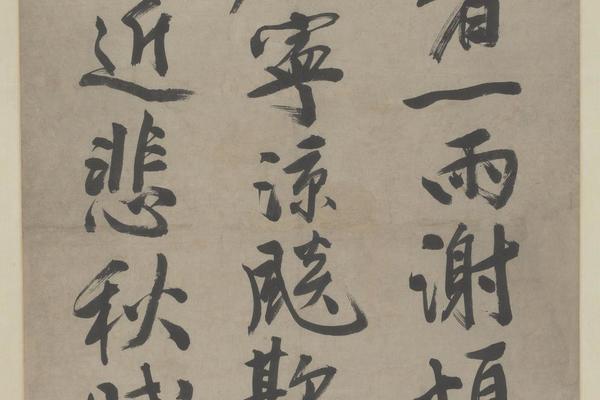 一雨謝
寧涼飈欺
近悲秋